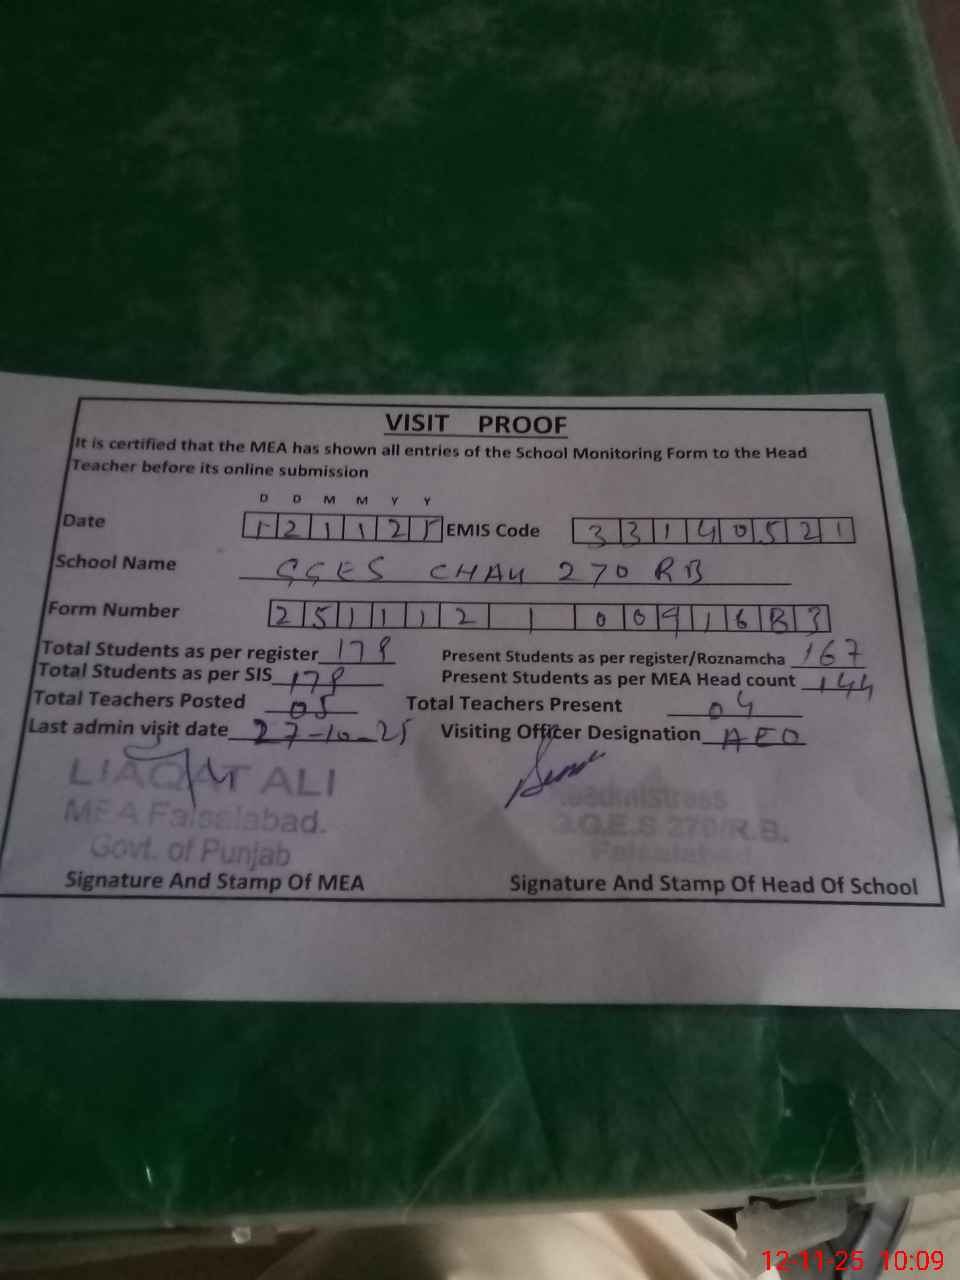 VISIT PROOF
It is certified that the MEA has shown all entries of the School Monitoring Form to the Head
Teacher before its online submission
D D M M Y Y
Date 12 11 25 EMIS Code 33140521
School Name GGES CHAK 270 RB
Form Number 251112 1 00916B3
Total Students as per register 178 Present Students as per register/Roznamcha 167
Total Students as per SIS 178 Present Students as per MEA Head count 144
Total Teachers Posted 05 Total Teachers Present 04
Last admin visit date 27-10-25 Visiting Officer Designation AEO
LIAQAT ALI
MEA Faisalabad.
Govt. of Punjab
Headmistress
G.G.E.S 270/R.B.
Faisalabad
Signature And Stamp Of MEA Signature And Stamp Of Head Of School
12-11-25 10:09